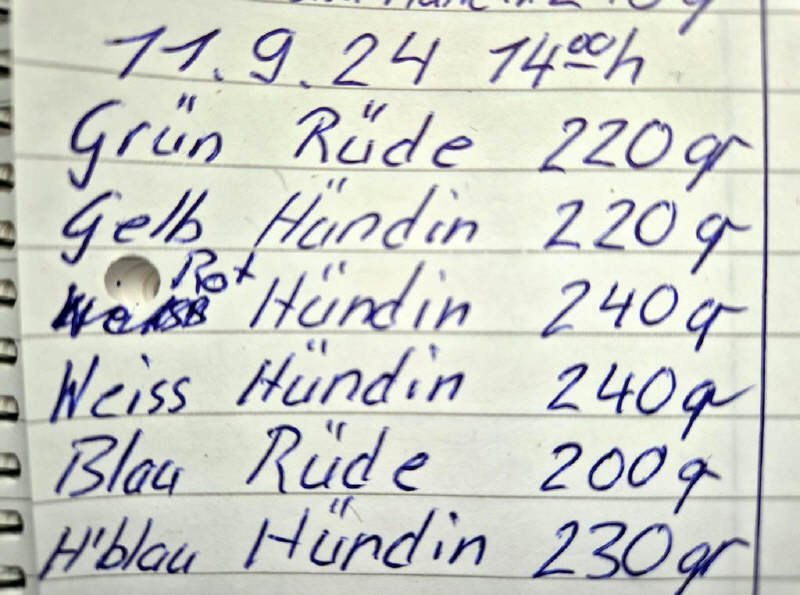 11.9.24 14⁰⁰h
Grün Rüde 220 gr
Gelb Hündin 220 gr
Rot Hündin 240 gr
Weiss Hündin 240 gr
Blau Rüde 200 gr
H'blau Hündin 230 gr